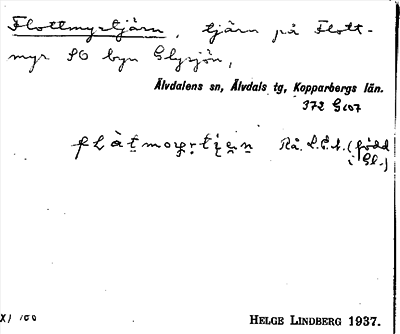 Flottmyrtjärn, tjärn på Flott-
myr SO byn Glysjön,
Älvdalens sn, Älvdals tg, Kopparbergs län.
372 G
Rå. L.E.A. (född
i Gl.)
XI 100
HELGE LINDBERG 1937.